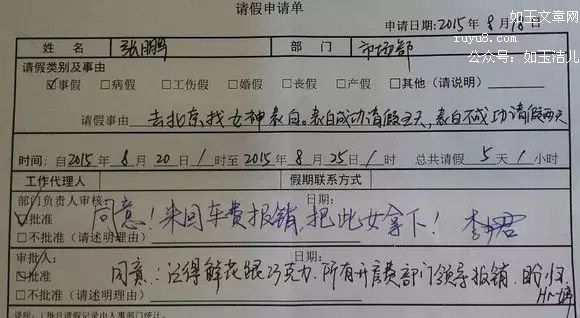 请假申请单
如玉文章网
申请日期:2015年8月18日
ruyu8.com
公众号:如玉洁儿
姓名 张鹏 部门 市场部
请假类别及事由
☑事假 □病假 □工伤假 □婚假 □丧假 □产假 □其他(请说明)
请假事由 去北京找女神表白。表白成功请假五天,表白不成功请假两天
时间:自2015年8月20日1时至2015年8月25日1时 总共请假5天1小时
工作代理人 假期联系方式
部门负责人审核: 日期:
☑批准 同意!来回车费报销,把此女拿下!李君
□不批准(请述明理由)
审批人: 日期:
☑批准 同意:记得鲜花跟巧克力.所有开房费部门领导报销.盼归.
□不批准(请述明理由) Hr
说明:1.每月请假记录由人事部门统计。